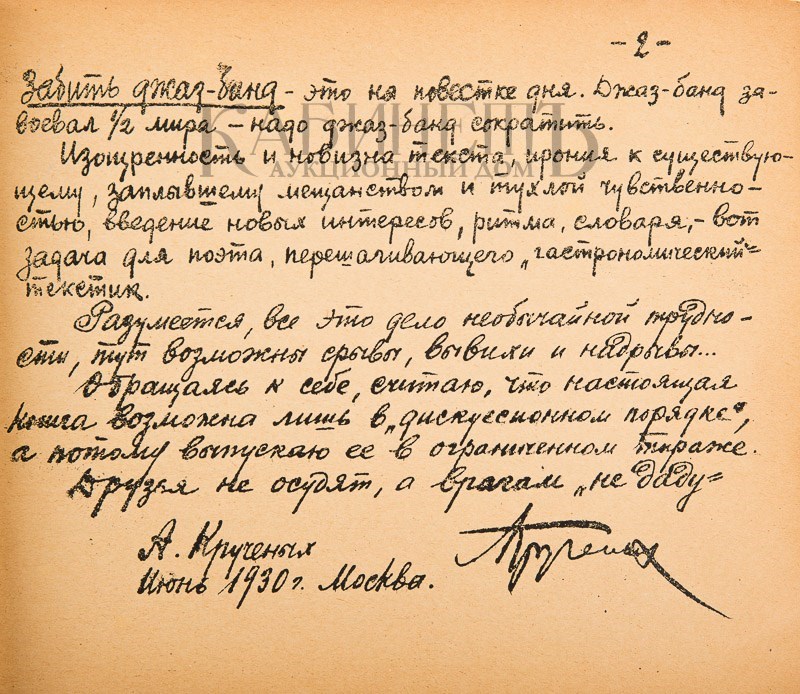 - 2 -
Забить джаз-банд - это на повестке дня. Джаз-банд за-
воевал 1/2 мира - надо джаз-банд сократить.
КАБИНЕТЪ
АУКЦИОННЫЙ ДОМ
Изощренность и новизна текста, ирония к существую-
щему, заплывшему мещанством и тухлой чувственно-
стью, введение новых интересов, ритма, словаря, - вот
задача для поэта, перешагивающего „гастрономический"
текстик.
Разумеется, все это дело необычайной трудно-
сти, тут возможны срывы, вывихи и надрывы...
Обращаясь к себе, считаю, что настоящая
книга возможна лишь в „дискуссионном порядке",
а потому выпускаю ее в ограниченном тираже.
Друзья не осудят, а врагам „не даду"
А. Крученых
Июнь 1930 г. Москва.
А Крученых